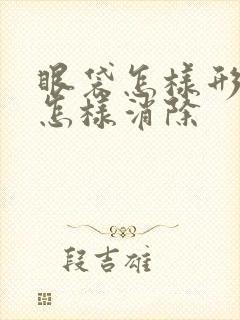 眼袋怎样形
怎样消除
段吉雄